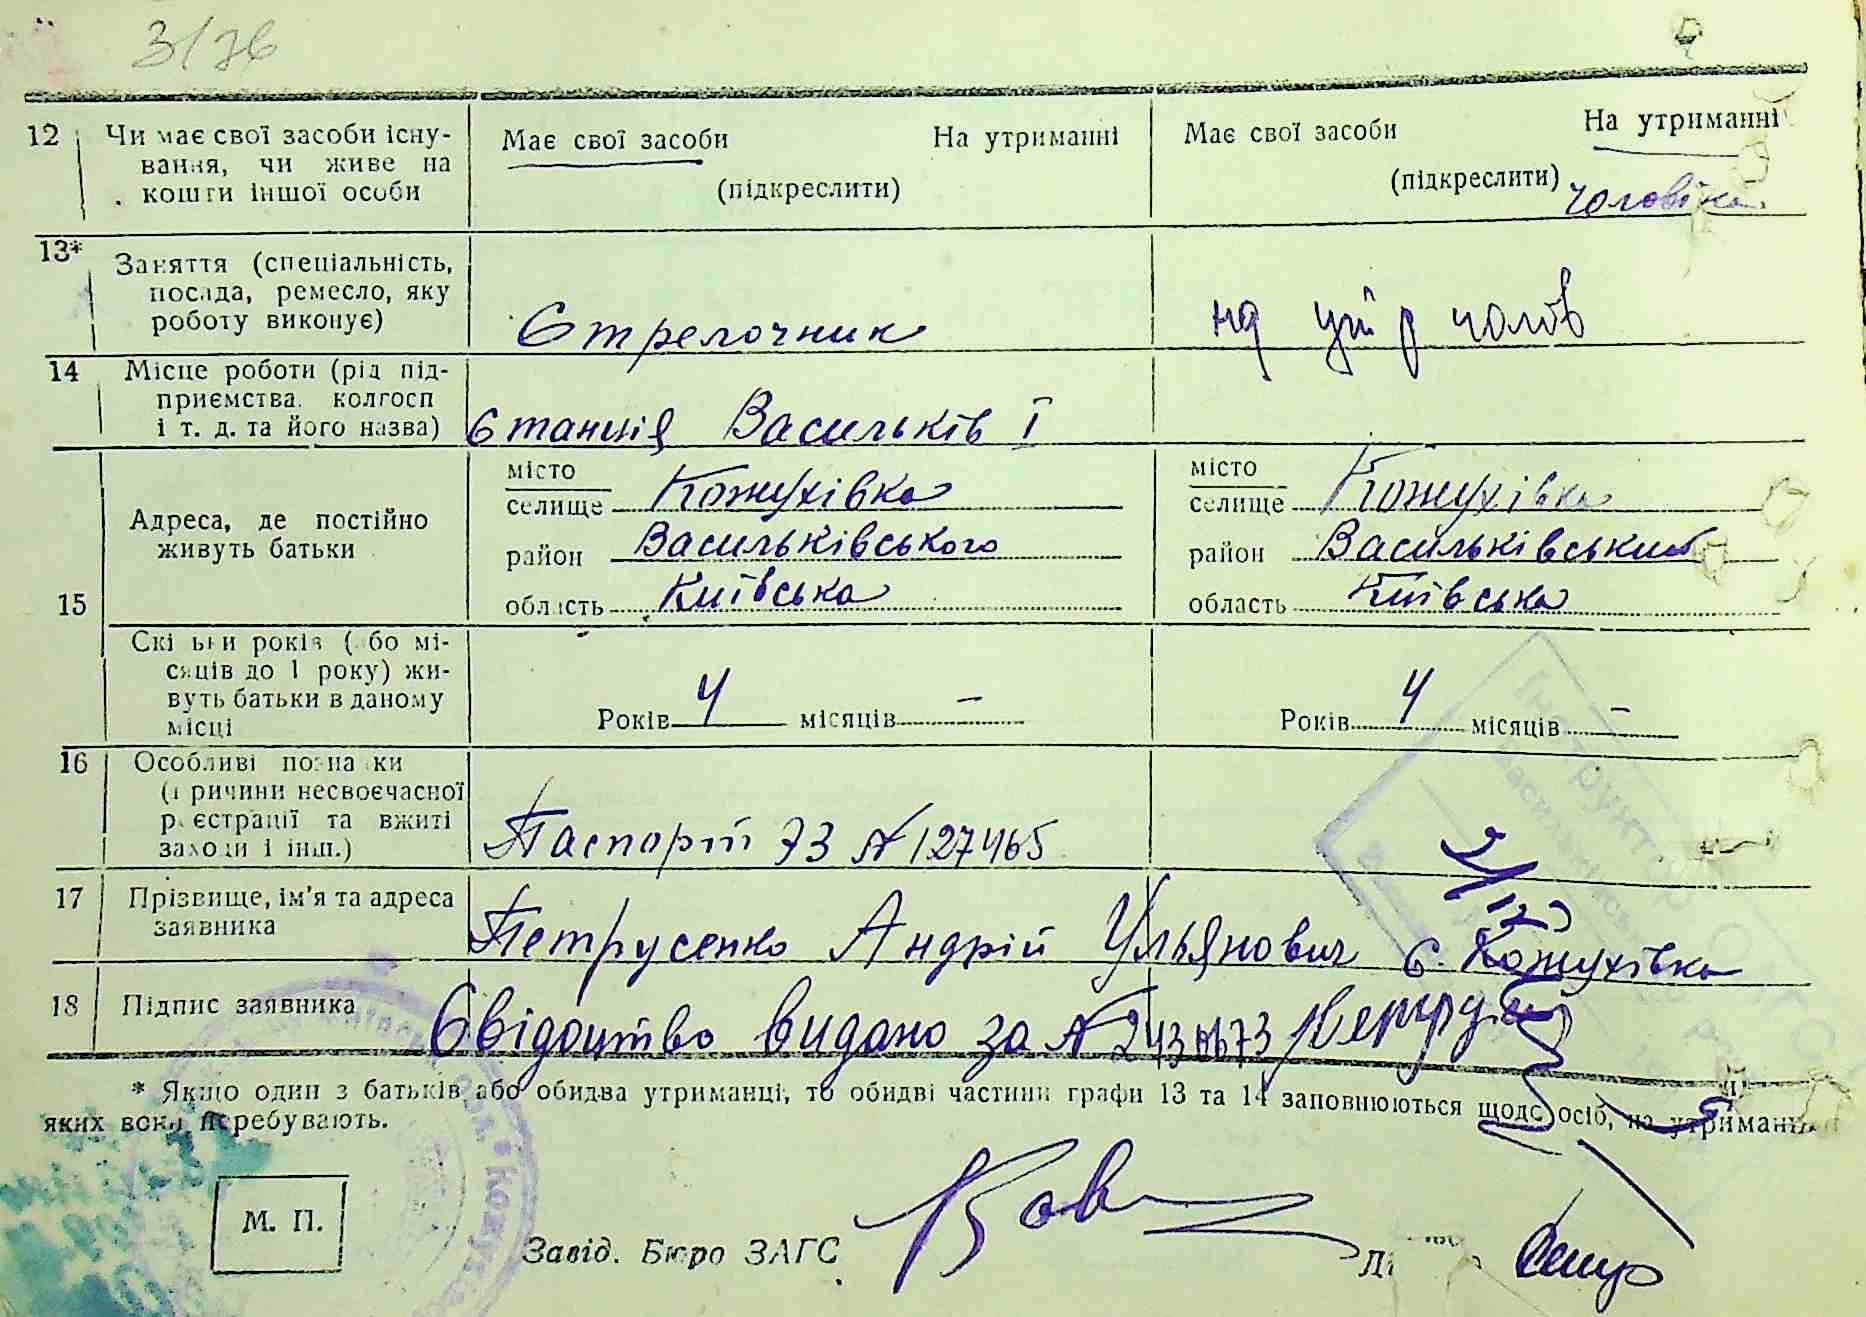 3/76
12 Чи має свої засоби існу-
вання, чи живе на
кошти іншої особи
Має свої засоби На утриманні
(підкреслити)
Має свої засоби На утриманні
(підкреслити) чоловіка
13* Заняття (спеціальність,
посада, ремесло, яку
роботу виконує)
Стрелочник
на утр чолов
14 Місце роботи (рід під-
приємства, колгосп
і т. д. та його назва)
Станція Васильків I
15 Адреса, де постійно
живуть батьки
місто
селище Кожухівка
район Васильківського
область Київська
місто
селище Кожухівка
район Васильківський
область Київська
Скільки років (або мі-
сяців до 1 року) жи-
вуть батьки в даному
місці
Років 4 місяців –
Років 4 місяців –
16 Особливі познаки
(причини несвоєчасної
реєстрації та вжиті
заходи і інш.)
Паспорт № 127465
17 Прізвище, ім'я та адреса
заявника
Петрусенко Андрій Ульянович с. Кожухівка
18 Підпис заявника
Свідоцтво видано за №
* Якщо один з батьків або обидва утриманці, то обидві частини графи 13 та 14 заповнюються щодо осіб, на утриманні
яких вони перебувають.
М. П.
Завід. Бюро ЗАГС